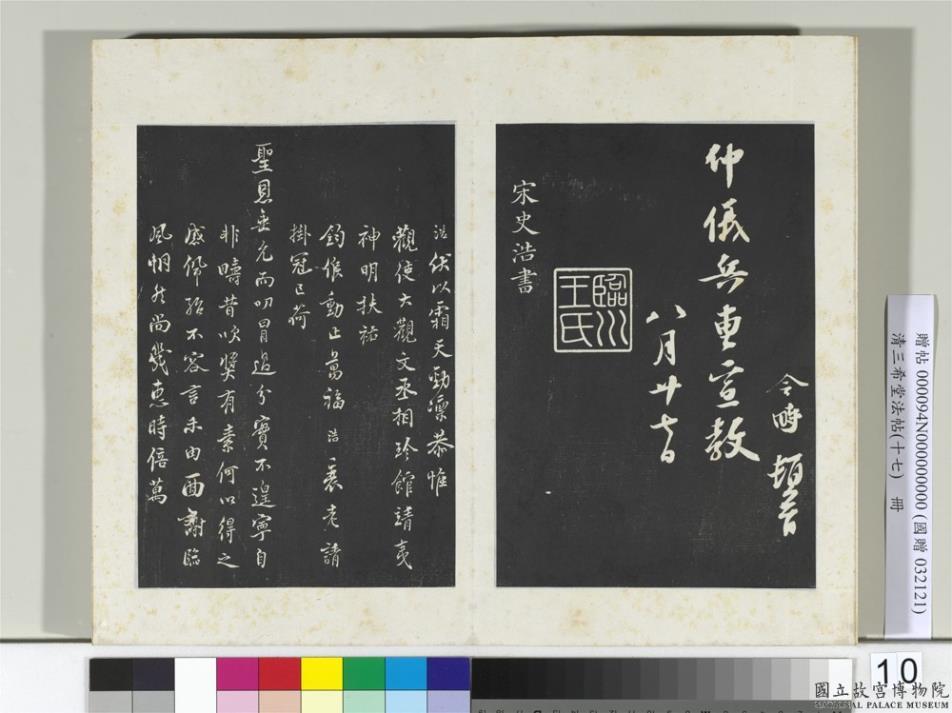 令畤頓首
仲儀兵曹宣教
八月廿六日
臨川王氏
宋史浩書
浩伏以霜天勁凜恭惟
觀使大觀文丞相珍館靖夷
神明扶祐
鈞候動止萬福浩衰老請
掛冠已荷
聖恩垂允而叨冒過分實不遑寧自
非疇昔吹獎有素何以得之
感佩殆不容言未由面謝臨
風惘然尚幾惠時倍萬
贈帖 000094N000000000 (國贈 032121)
清三希堂法帖(十七) 冊
10
國立故宮博物院
NATIONAL PALACE MUSEUM